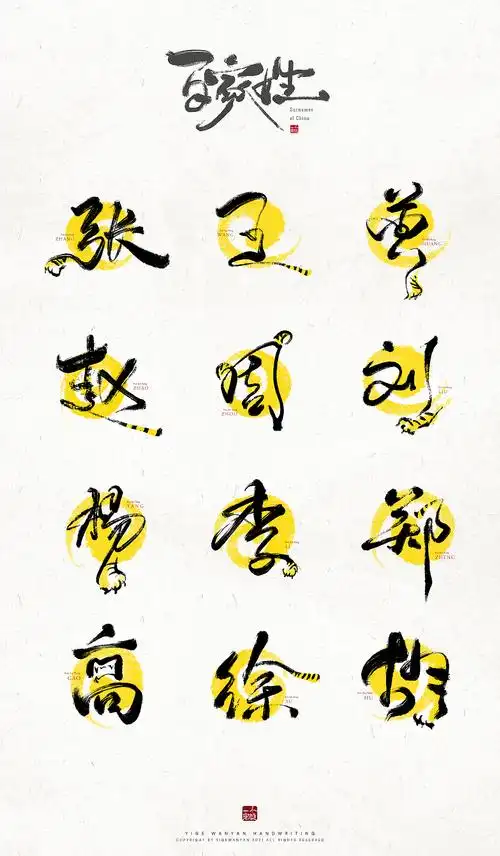 百家姓
Surnames
of China
张
ZHANG
王
WANG
黄
HUANG
赵
ZHAO
周
ZHOU
刘
LIU
楊
YANG
李
LI
郑
ZHENG
高
GAO
徐
XU
胡
HU
YIGE WANYAN HANDWRITING
COPYRIGHT BY YIGEWANYAN 2021 ALL RIGHTS RESERVED